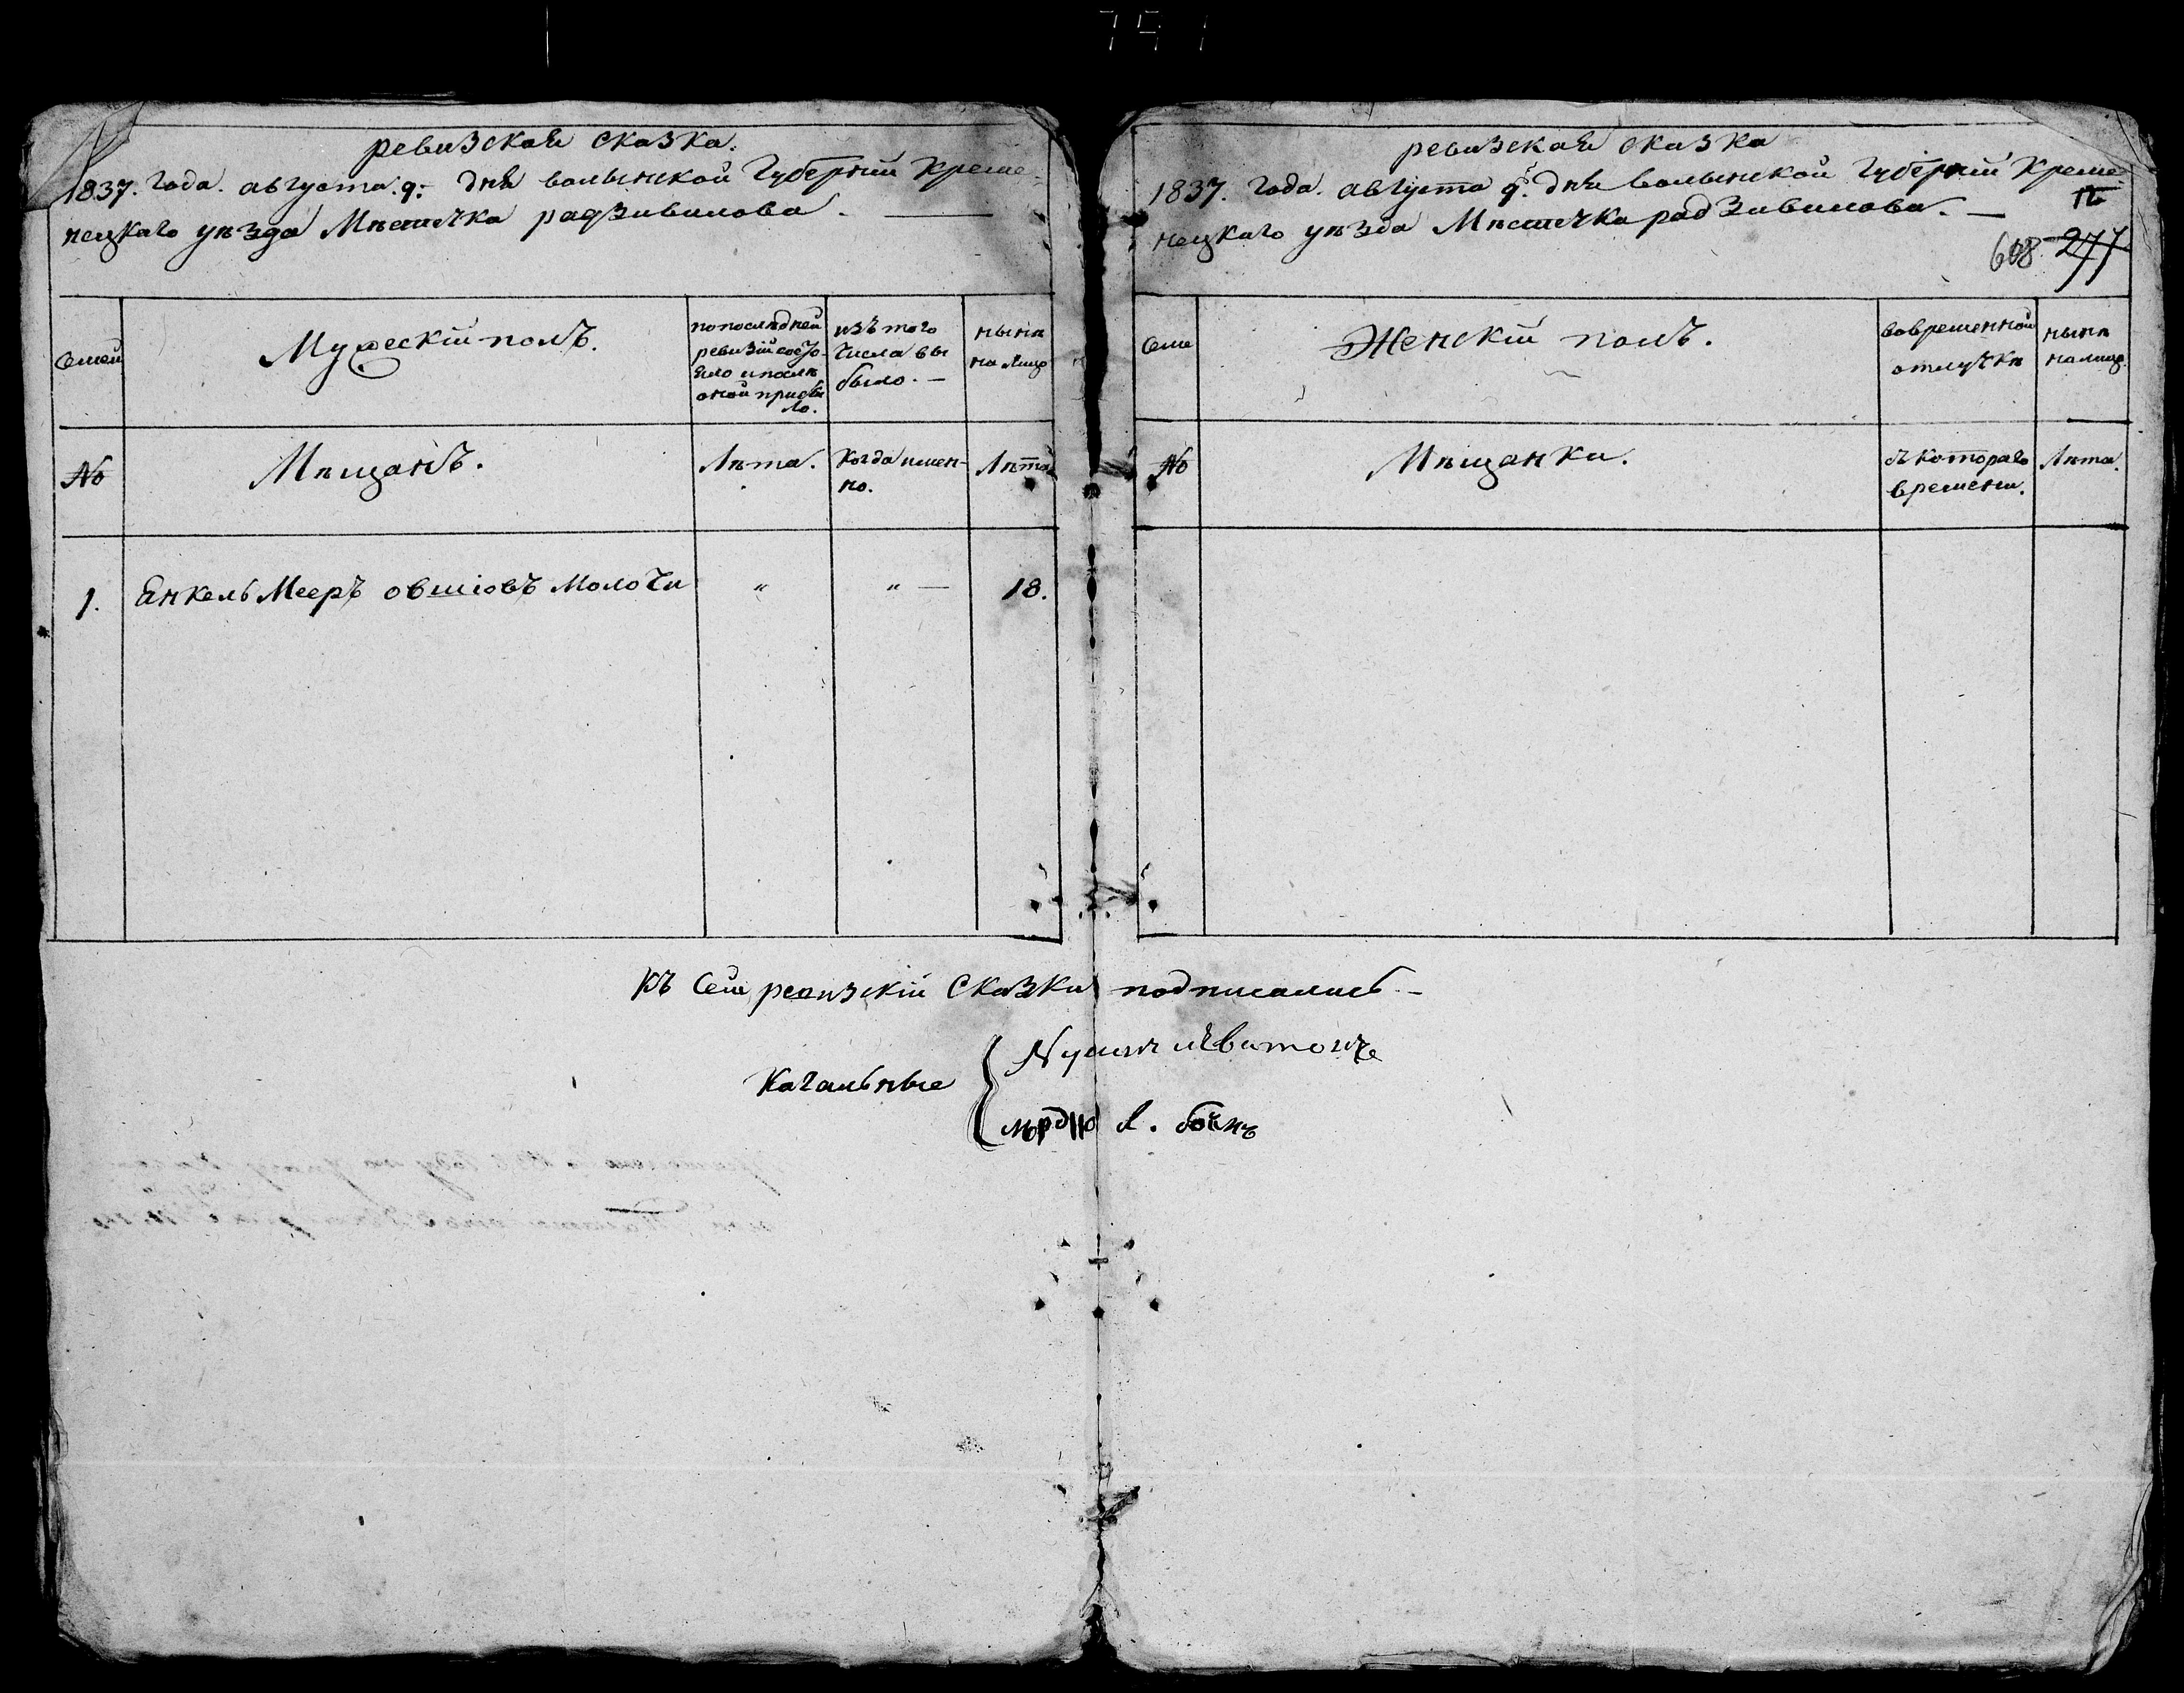 ревизская сказка.
1837. года. августа. 9. дня волынской Губерніи Креме-
нецкаго уѣзда Мѣстечка радзивилова. —
Семей
Мужескій полъ.
по послѣдней
ревизіи состо-
яло и послѣ
оной прибы
ло.
изъ того
числа вы
было. —
нынѣ
на лицо
№
Мѣщанъ.
Лѣта.
Когда имен-
но.
Лѣта
1.
Янкель Мееръ овшіовъ Молочи
"
" —
18.
ревизская сказка
1837. года. августа 9. дня волынской Губерніи Креме
нецкаго уѣзда Мѣстечка радзивилова. —
608 277
Семе
Женскій полъ.
вовременной
отлучкѣ
нынѣ
налицо.
№
Мѣщанки.
съ котораго
времени.
Лѣта.
Къ Сей ревизскій Сказки подписались —
Кагальные